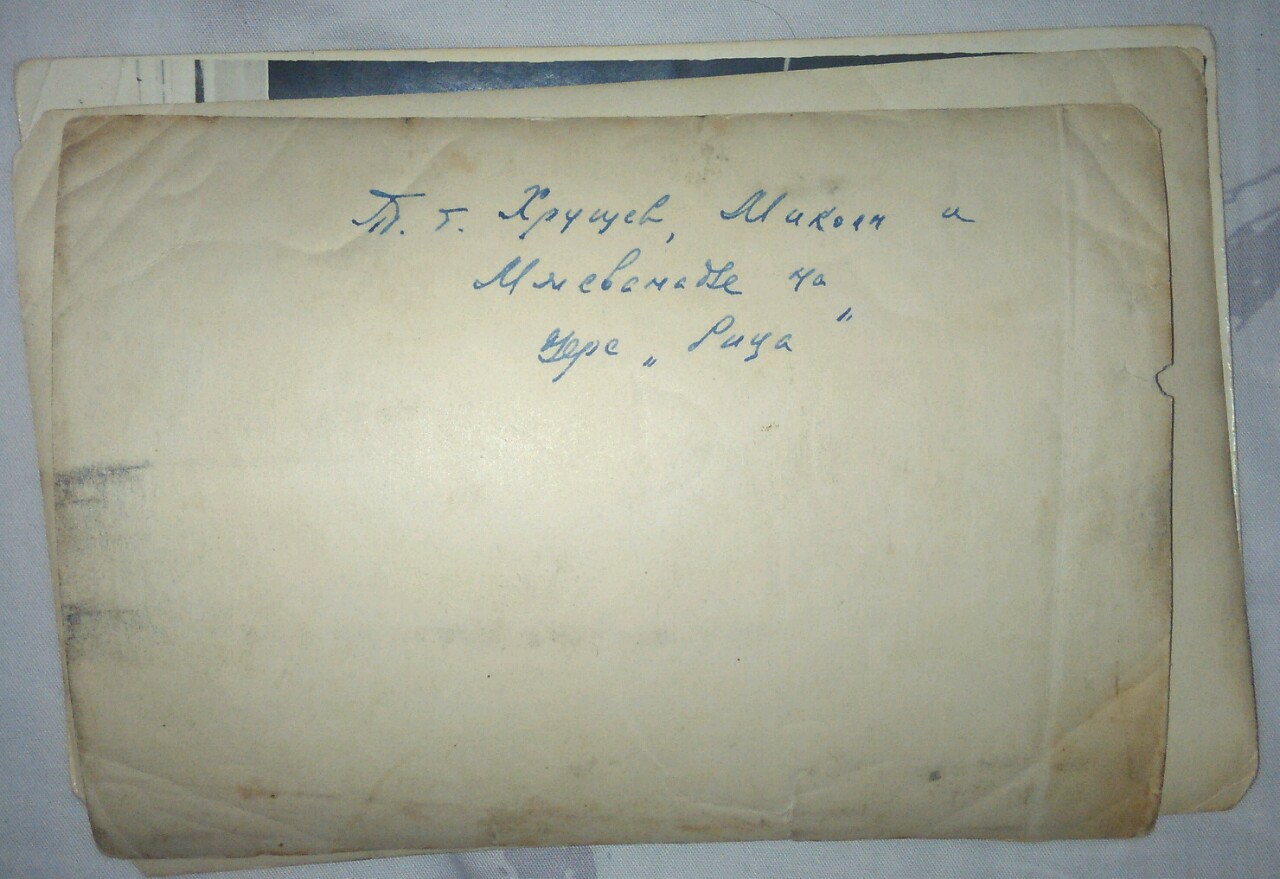 Т. т. Хрущев, Микоян и
Мжаванадзе на
озере „Рица"